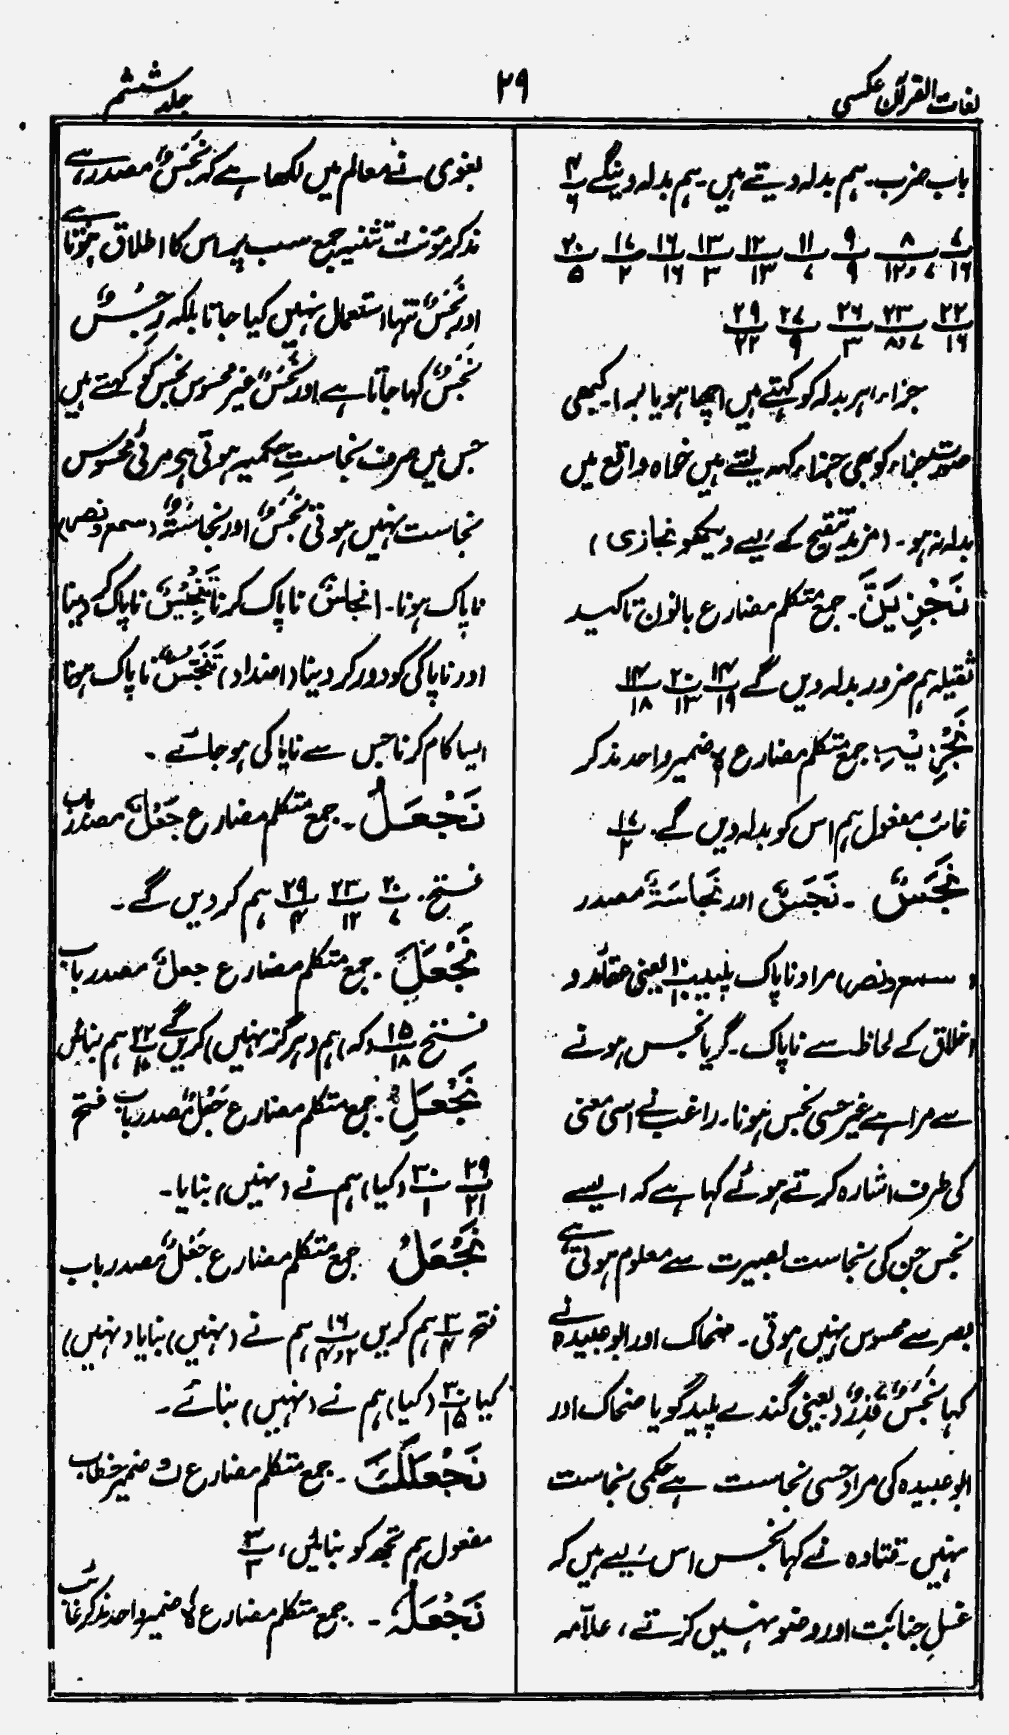 لغات القرآن عکسی
۲۹
جلد ششم
باب ضرب۔ ہم بدلہ دیتے ہیں۔ ہم بدلہ دینگے ۴/۶
۷/۱۶ ۸/۷، ۱۲ ۹/۹ ۱۱/۷ ۱۲/۱۳ ۱۳/۳ ۱۶/۱۶ ۱۷/۲ ۲۰/۵
۲۲/۱۶ ۲۳/۷، ۸ ۲۶/۳ ۲۷/۹ ۲۹/۲۲
جزاء، ہر بدلہ کو کہتے ہیں اچھا ہو یا برا۔ کبھی
صورت جزاء کو بھی جزاء کہہ لیتے ہیں خواہ واقع میں
بدلہ نہ ہو۔ (مزید تنقیح کے لیے دیکھو نجازی)
نَجْزِیَنَّ۔ جمع متکلم مضارع بانون تاکید
ثقیلہ ہم ضرور بدلہ دیں گے ۱۴/۱۹ ۲۰/۱۳ ۱۴/۱۸
نَجْزِیْہِ۔ جمع متکلم مضارع ہ ضمیر واحد مذکر
غائب مفعول ہم اس کو بدلہ دیں گے۔ ۱۷/۲
نَجَسٌ۔ نَجَسٌ اور نَجَاسَۃٌ مصدر
(سمع و نصر) مراد ناپاک پلید ۱۰/۱۰ یعنی عقائد و
اخلاق کے لحاظ سے ناپاک۔ گویا نجس ہونے
سے مراد ہے غیر حسی نجس ہونا۔ راغب نے اسی معنی
کی طرف اشارہ کرتے ہوئے کہا ہے کہ ایسے
نجس جن کی نجاست بصیرت سے معلوم ہوتی ہے
بصر سے محسوس نہیں ہوتی۔ ضحاک اور ابوعبیدہ نے
کہا نَجَسٌ قَذِرٌ (یعنی گندے پلید گویا ضحاک اور
ابوعبیدہ کی مراد حسی نجاست ہے حکمی نجاست
نہیں۔ قتادہ نے کہا نجس اس لیے ہیں کہ
غسلِ جنابت اور وضو نہیں کرتے، علامہ
بغوی نے معالم میں لکھا ہے کہ نَجَسٌ مصدر ہے
مذکر مؤنث تثنیہ جمع سب پر اس کا اطلاق ہوتا ہے
اور نَجَسٌ تنہا استعمال نہیں کیا جاتا بلکہ رِجْسٌ
نَجَسٌ کہا جاتا ہے اور نَجَسٌ غیر محسوس نجس کو کہتے ہیں
جس میں صرف نجاستِ حکمیہ ہوتی ہو مرئی محسوس
نجاست نہیں ہوتی نَجَسٌ اور نَجَاسَۃٌ (سمع و نصر)
ناپاک ہونا۔ انجاسٌ ناپاک کرنا تَنْجِیْسٌ ناپاک کر دینا
اور ناپاکی کو دور کر دینا (اضداد) تَنَجُّسٌ ناپاک ہونا
ایسا کام کرنا جس سے ناپاکی ہو جائے۔
نَجْعَلُ۔ جمع متکلم مضارع جَعْلٌ مصدر باب
فتح۔ ۲۰/۷ ۲۳/۱۲ ۲۹/۴ ہم کر دیں گے۔
نَجْعَلَ۔ جمع متکلم مضارع جعلٌ مصدر باب
فتح ۱۵/۱۸ (کہ) ہم (ہرگز نہیں) کریں گے ۲۲/۱۸ ہم بنائیں
نَجْعَلِ۔ جمع متکلم مضارع جَعْلٌ مصدر باب فتح
۲۹/۲۱ ۳۰/۱ (کیا) ہم نے (نہیں) بنایا۔
نَجْعَلْ جمع متکلم مضارع جَعْلٌ مصدر باب
فتح ۳/۱۴ ہم کریں ۱۶/۲، ۴ ہم نے (نہیں) بنایا (نہیں)
کیا ۳۰/۱۵ (کیا) ہم نے (نہیں) بنائے۔
نَجْعَلَکَ۔ جمع متکلم مضارع ک ضمیر خطاب
مفعول ہم تجھ کو بنائیں، ۳/۳
نَجْعَلَہٗ۔ جمع متکلم مضارع ہٗ ضمیر واحد مذکر غائب